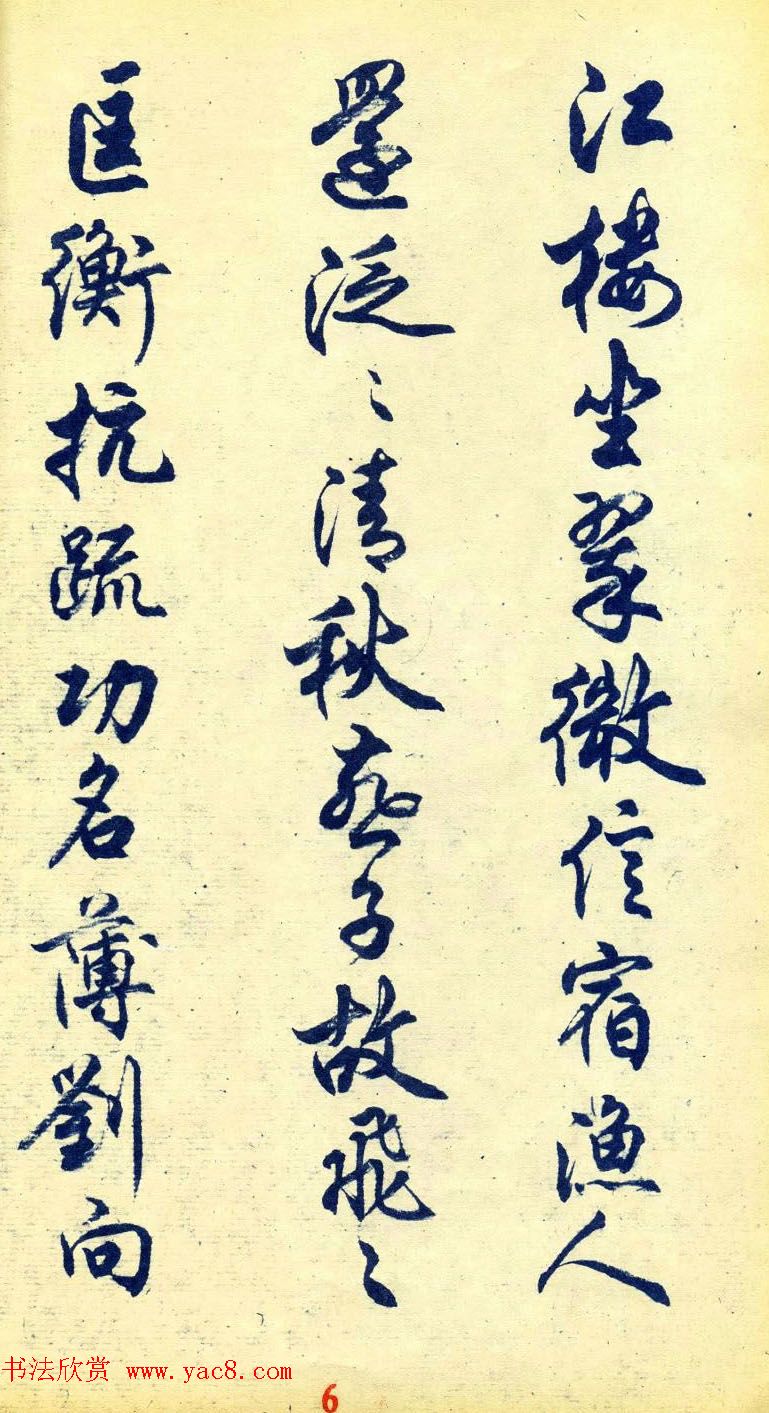 江樓坐翠微信宿漁人
還泛〻清秋燕子故飛〻
匡衡抗疏功名薄劉向
书法欣赏 www.yac8.com
6